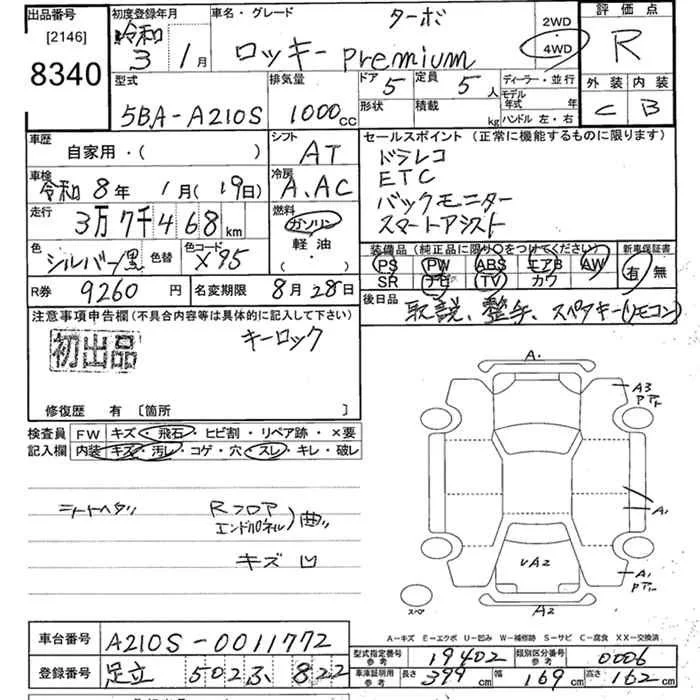 出品番号
[2146]
8340
初度登録年月
令和
3 1月
車名・グレード
ターボ
ロッキー premium
2WD
4WD
評価点
R
外装 内装
C B
型式
5BA-A210S
排気量
1000cc
ドア 5
定員 5人
形状
積載 kg
ディーラー・並行
モデル年式 年
ハンドル 左・右
車歴
自家用・( )
シフト
AT
車検
令和8年 1月(19日)
冷房
A.AC
走行
3万7千468km
燃料
ガソリン
軽油
・( )
色
シルバー/黒
色替
色コード
X95
R券 9260円
名変期限 8月28日
セールスポイント (正常に機能するものに限ります)
ドラレコ
ETC
バックモニター
スマートアシスト
装備品 (純正品に限り○をつけてください)
PS PW ABS エアB AW
SR ナビ TV カワ
新車保証書
有 無
後日品
取説、整手、スペアキー(リモコン)
注意事項申告欄 (不具合内容等は具体的に記入して下さい)
初出品
キーロック
修復歴 有 [箇所 ]
検査員
記入欄
FW キズ・飛石・ヒビ割・リペア跡・×要
内装 キズ・汚レ・コゲ・穴・スレ・キレ・破レ
シートヘタリ
Rフロア
エンドパネル)曲り
キズ 凹
A.
A3
Pアト
A1
A1
Pアト
VA2
A2
スペア
A-キズ E-エクボ U-凹み W-補修跡 S-サビ C-腐食 XX-交換済
車台番号 A210S-0011772
登録番号 足立 502 ふ 822
型式指定番号
参考
19402
類別区分番号
参考
0006
車庫証明用
参考
長さ 399cm
幅 169cm
高さ 162cm